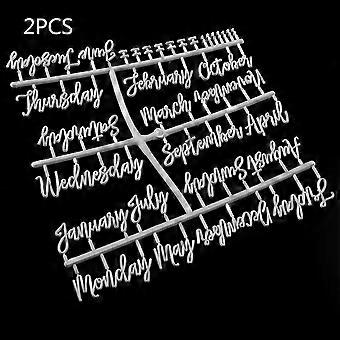 2PCS
Tuesday June
February October
Thursday
March November
Saturday
September April
Wednesday
Sunday August
January July
Monday May December